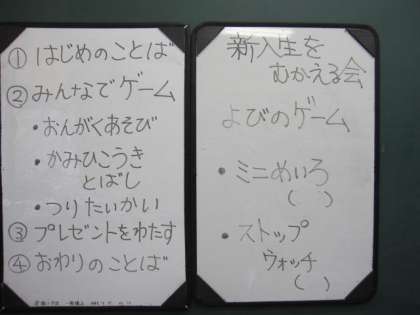 ① はじめのことば
② みんなでゲーム
・おんがくあそび
・かみひこうき
とばし
・つりたいかい
③ プレゼントをわたす
④ おわりのことば
新入生を
むかえる会
よびのゲーム
・ミニめいろ
( )
・ストップ
ウォッチ
( )